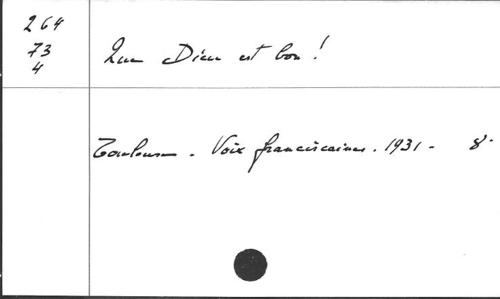 264
73
4
Que Dieu est bon !
Toulouse - Voix franciscaines. 1931 - 8°